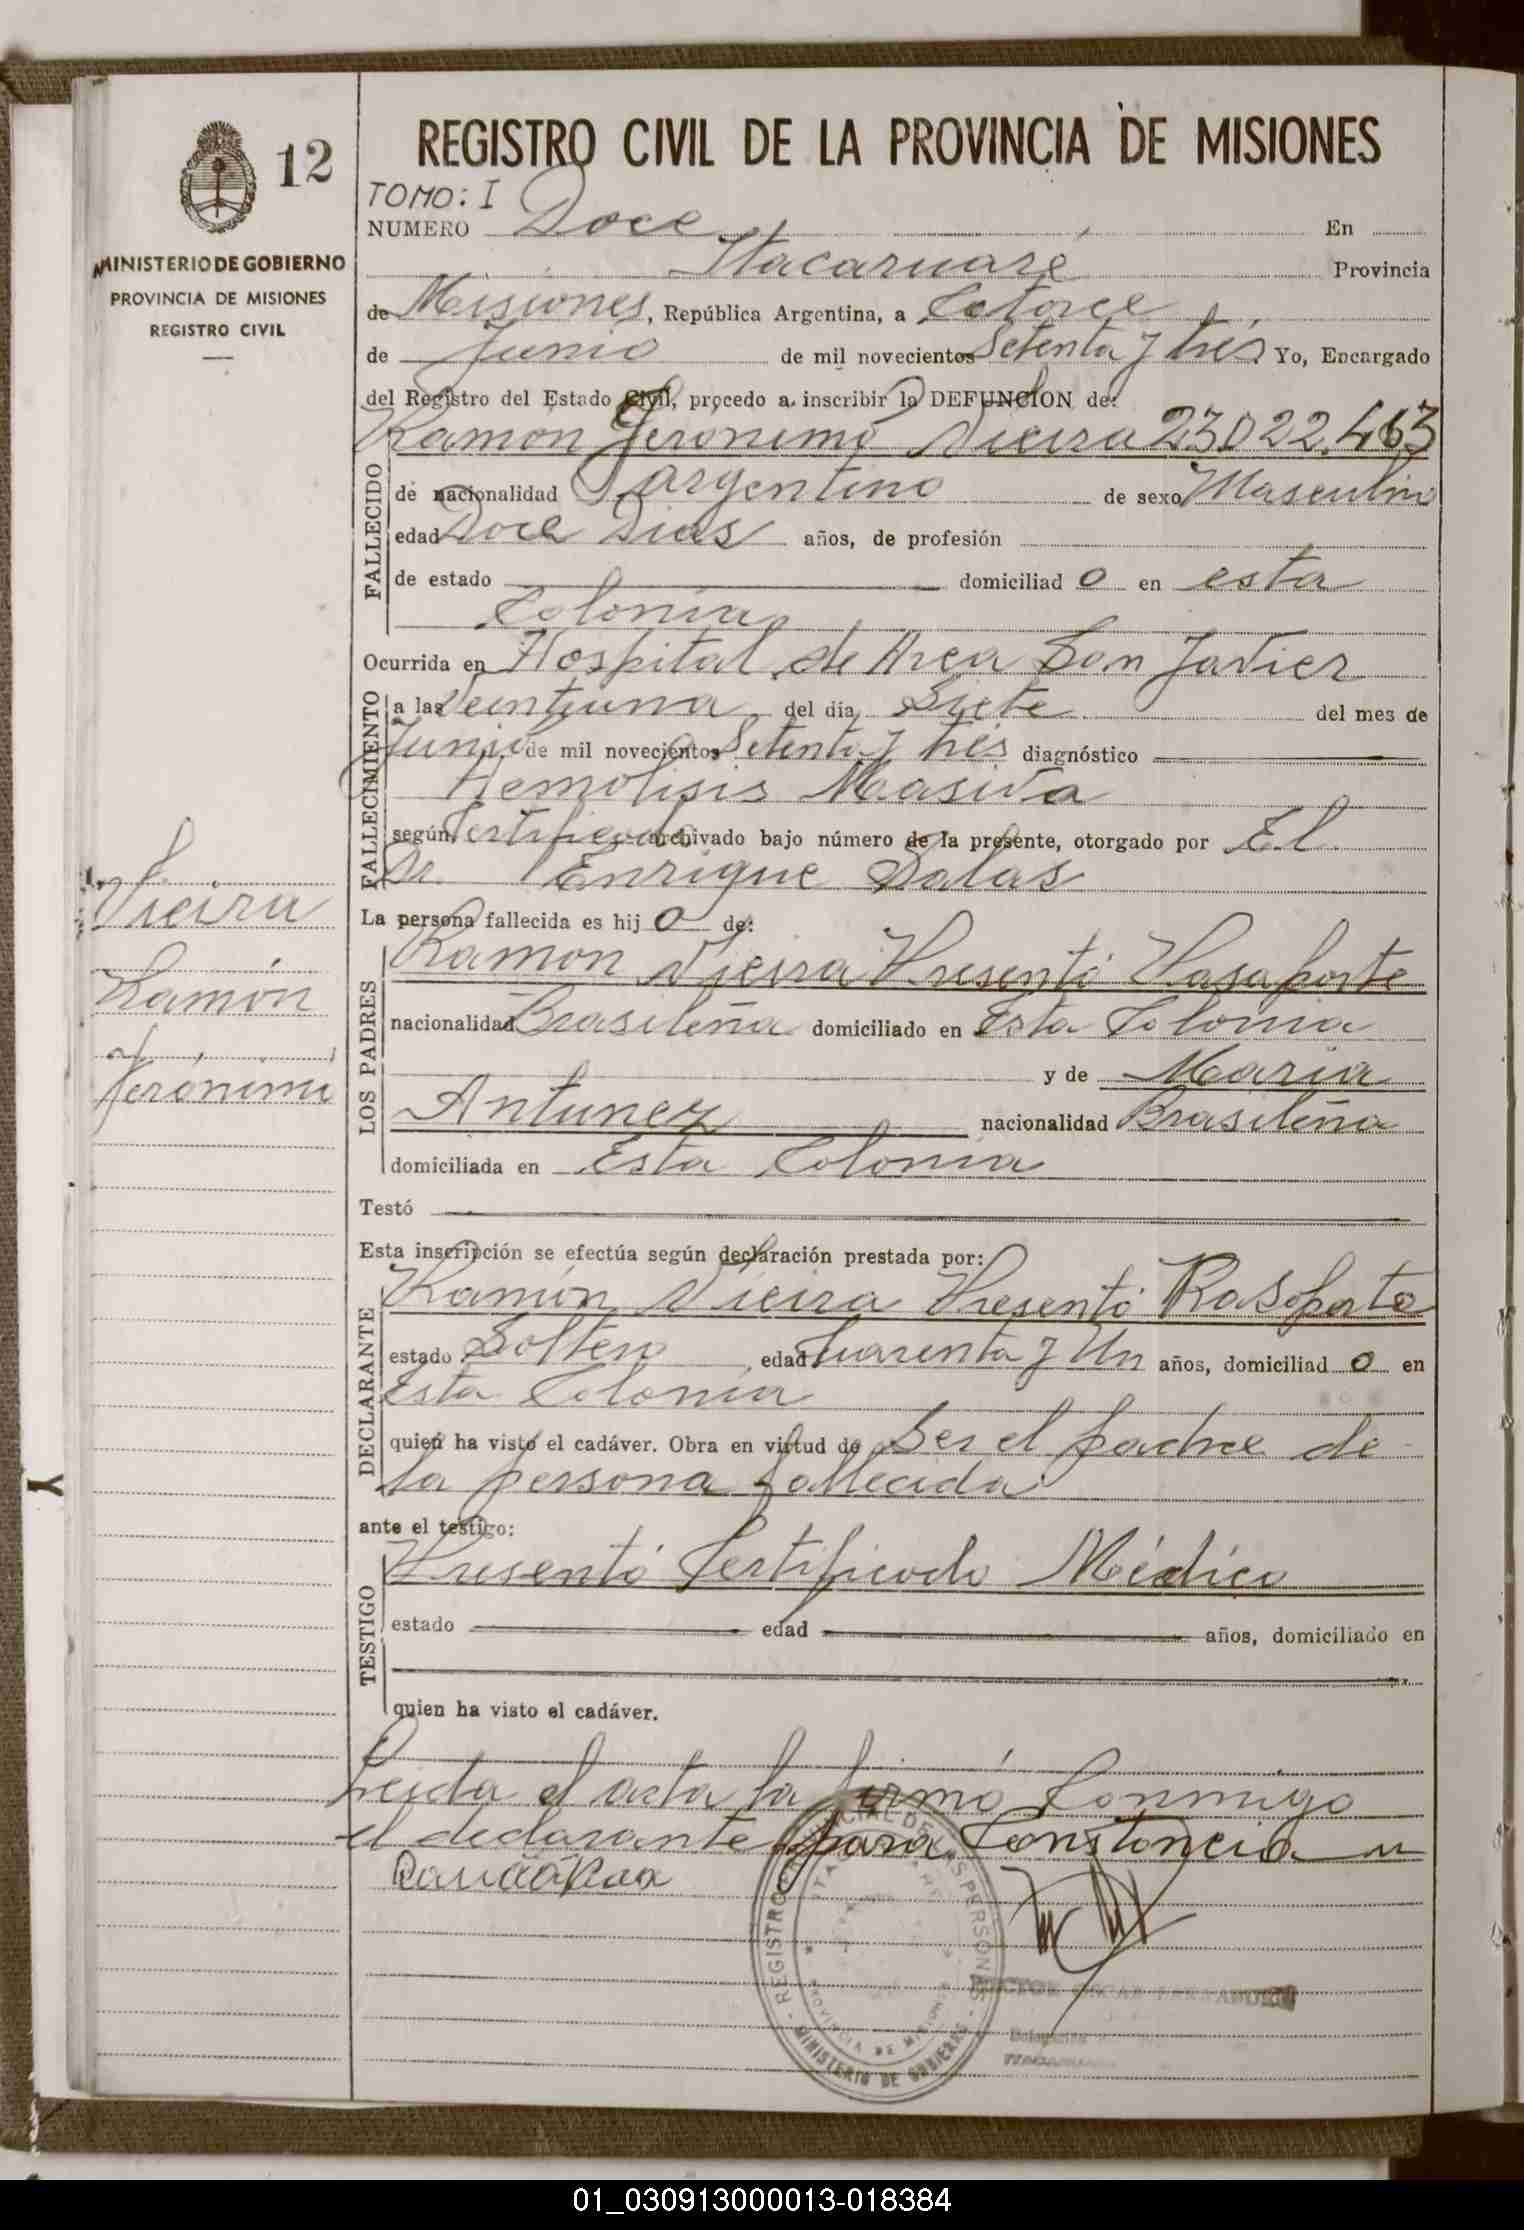 12
MINISTERIO DE GOBIERNO
PROVINCIA DE MISIONES
REGISTRO CIVIL
Vieira
Ramón
Jerónimo
REGISTRO CIVIL DE LA PROVINCIA DE MISIONES
TOMO: I
NUMERO Doce En
Itacaruaré Provincia
de Misiones, República Argentina, a Catorce
de Junio de mil novecientos Setenta y tres Yo, Encargado
del Registro del Estado Civil, procedo a inscribir la DEFUNCION de:
Ramon Jeronimo Vieira 23.022.463
FALLECIDO
de nacionalidad argentino de sexo Masculino
edad Doce Dias años, de profesión
de estado domiciliad o en esta
Colonia
Ocurrida en Hospital de Area San Javier
FALLECIMIENTO
a las Veintiuna del día Siete del mes de
Junio de mil novecientos Setenta y tres diagnóstico
Hemolisis Masiva
según Certificado archivado bajo número de la presente, otorgado por El
Dr. Enrique Salas
La persona fallecida es hij o de:
LOS PADRES
Ramon Vieira Presentó Pasaporte
nacionalidad Brasileña domiciliado en Esta Colonia
y de Maria
Antunez nacionalidad Brasileña
domiciliada en Esta Colonia
Testó
Esta inscripción se efectúa según declaración prestada por:
DECLARANTE
Ramón Vieira Presentó Pasoporte
estado Soltero edad Cuarenta y Un años, domiciliad o en
Esta Colonia
quien ha visto el cadáver. Obra en virtud de Ser el padre de
la persona fallecida
ante el testigo:
TESTIGO
Presentó Certificado Médico
estado edad años, domiciliado en
quien ha visto el cadáver.
Leida el acta la firmó Conmigo
el declarante para Constancia
REGISTRO PROVINCIAL DE LAS PERSONAS
MINISTERIO DE GOBIERNO
PROVINCIA DE MISIONES
01_030913000013-018384